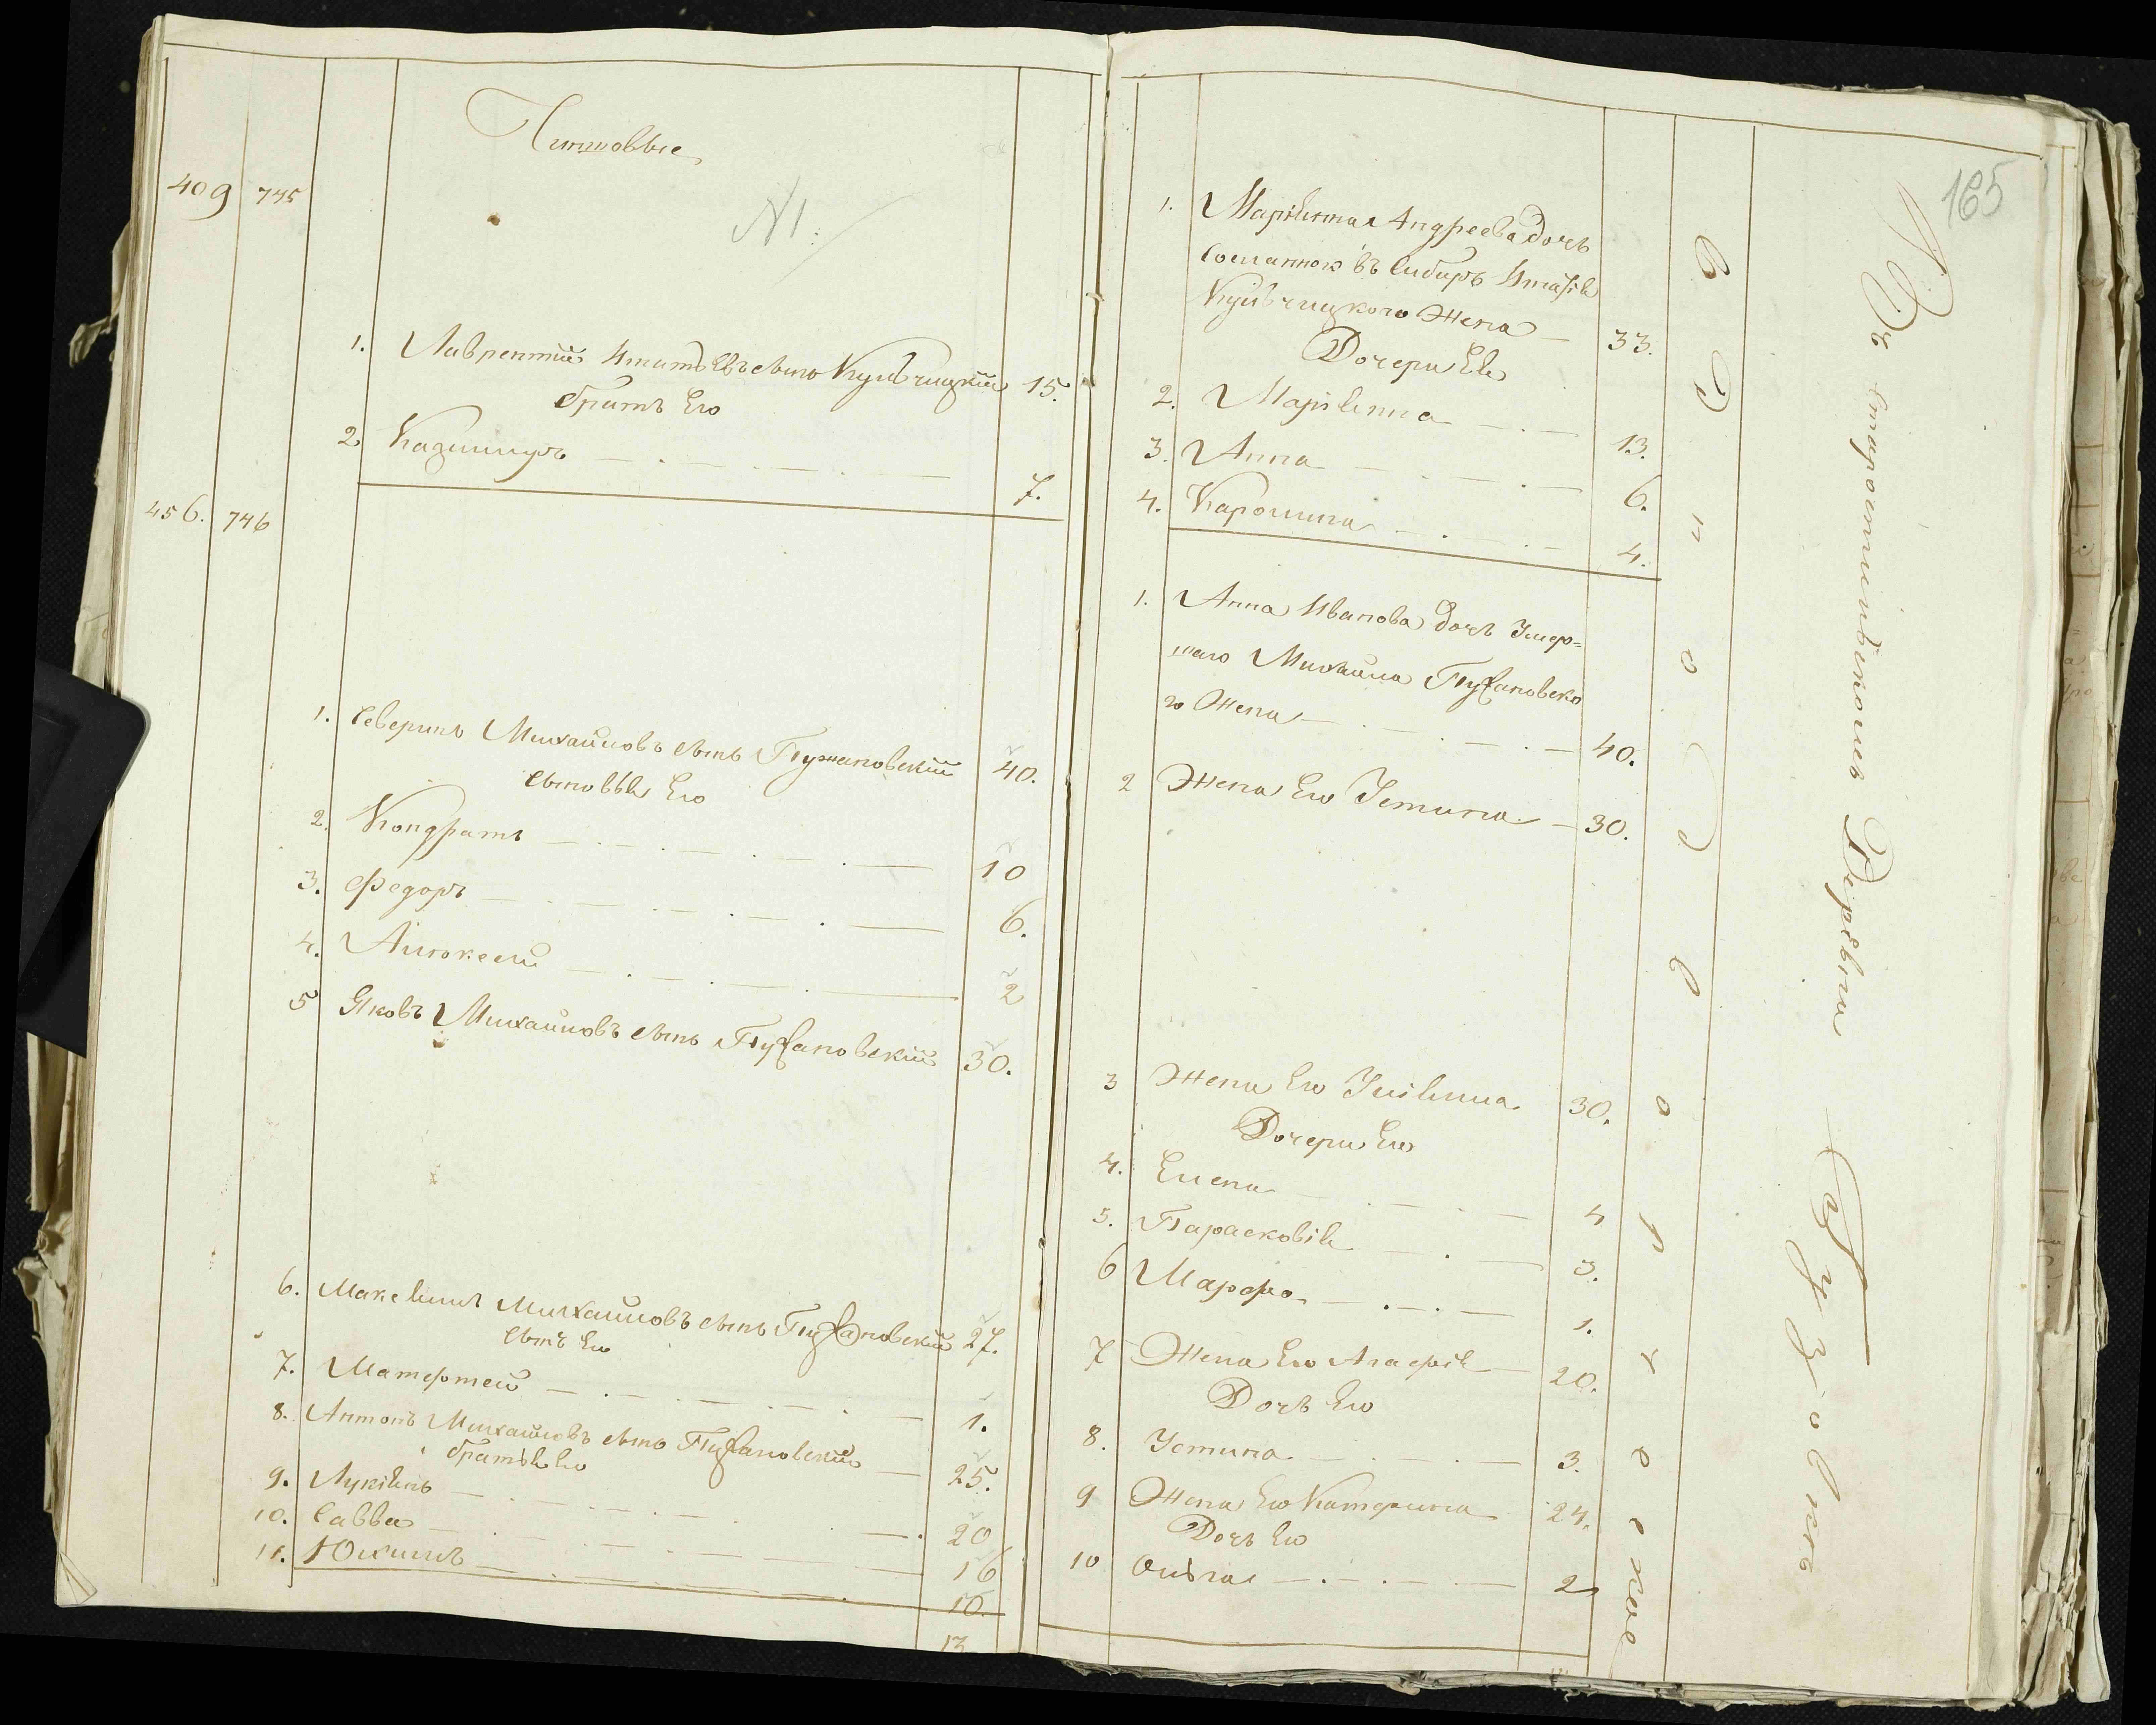 Чиншовые
409 745
N 1.
1. Лаврентий Игнатьевъ сынъ Кульчицкий 15.
братъ Его
2. Казимиръ 7.
456. 746
1. Северинъ Михайловъ сынъ Пужановский 40.
сыновья Его
2. Кондратъ 10
3. Федоръ 6.
4. Алексей 2
5 Яковъ Михайловъ сынъ Пужановский 30.
6. Максимъ Михайловъ сынъ Пужановский 27.
сынъ Его
7. Матефтей 1.
8. Антонъ Михайловъ сынъ Пужановский 25.
братья Его
9. Лукіянъ 20
10. Савва 16
11. Юхимъ 10.
13
165
1. Маріянна Андреева дочь
сосланного въ Сибирь Игнатія
Кульчицкого Жена 33.
Дочери Ея
2. Маріянна 13.
3. Анна 6.
4. Каролина 4.
1. Анна Иванова дочь Умер=
шаго Михайла Пужановско
го Жена 40.
2 Жена Его Устина 30.
3 Жена Его Ульянна 30.
Дочери Его
4. Елена 4
5. Парасковія 3.
6 Марфа 1.
7 Жена Его Агафія 20.
Дочь Его
8. Устина 3.
9 Жена Его Катерина 24.
Дочь Его
10 Ольга 2
Въ Старостинской Деревни